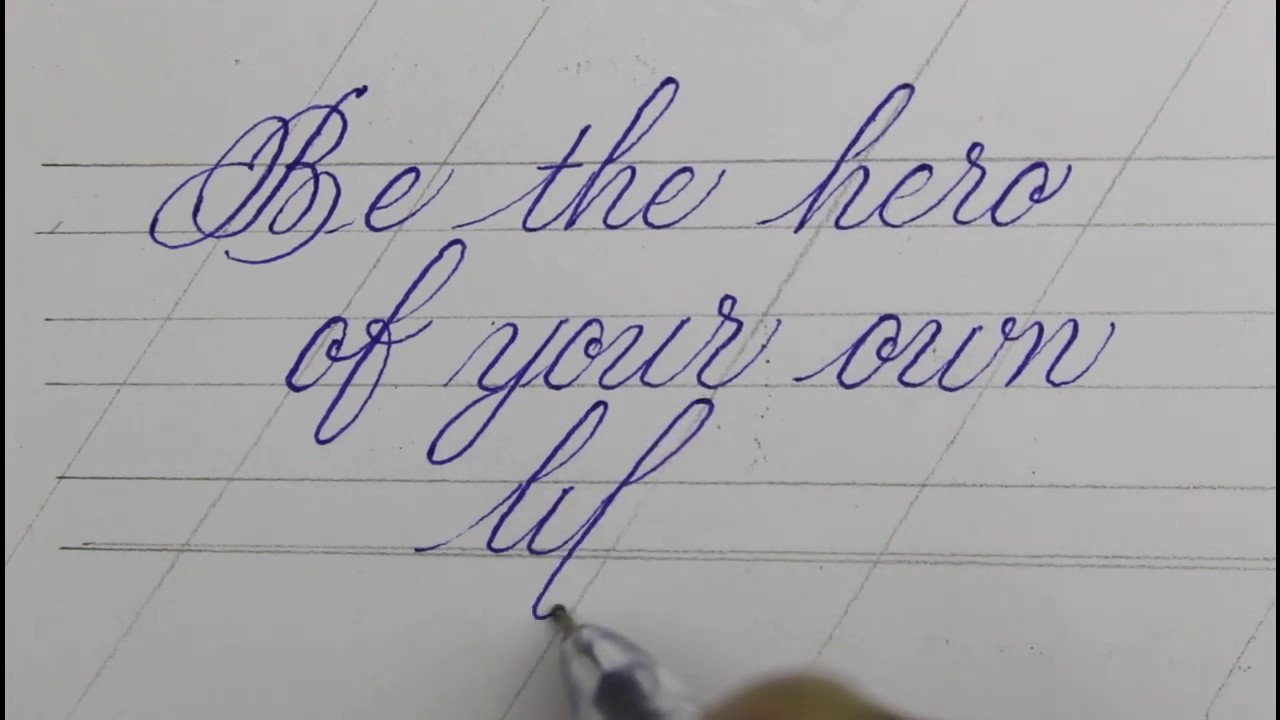 Be the hero
of your own
lif